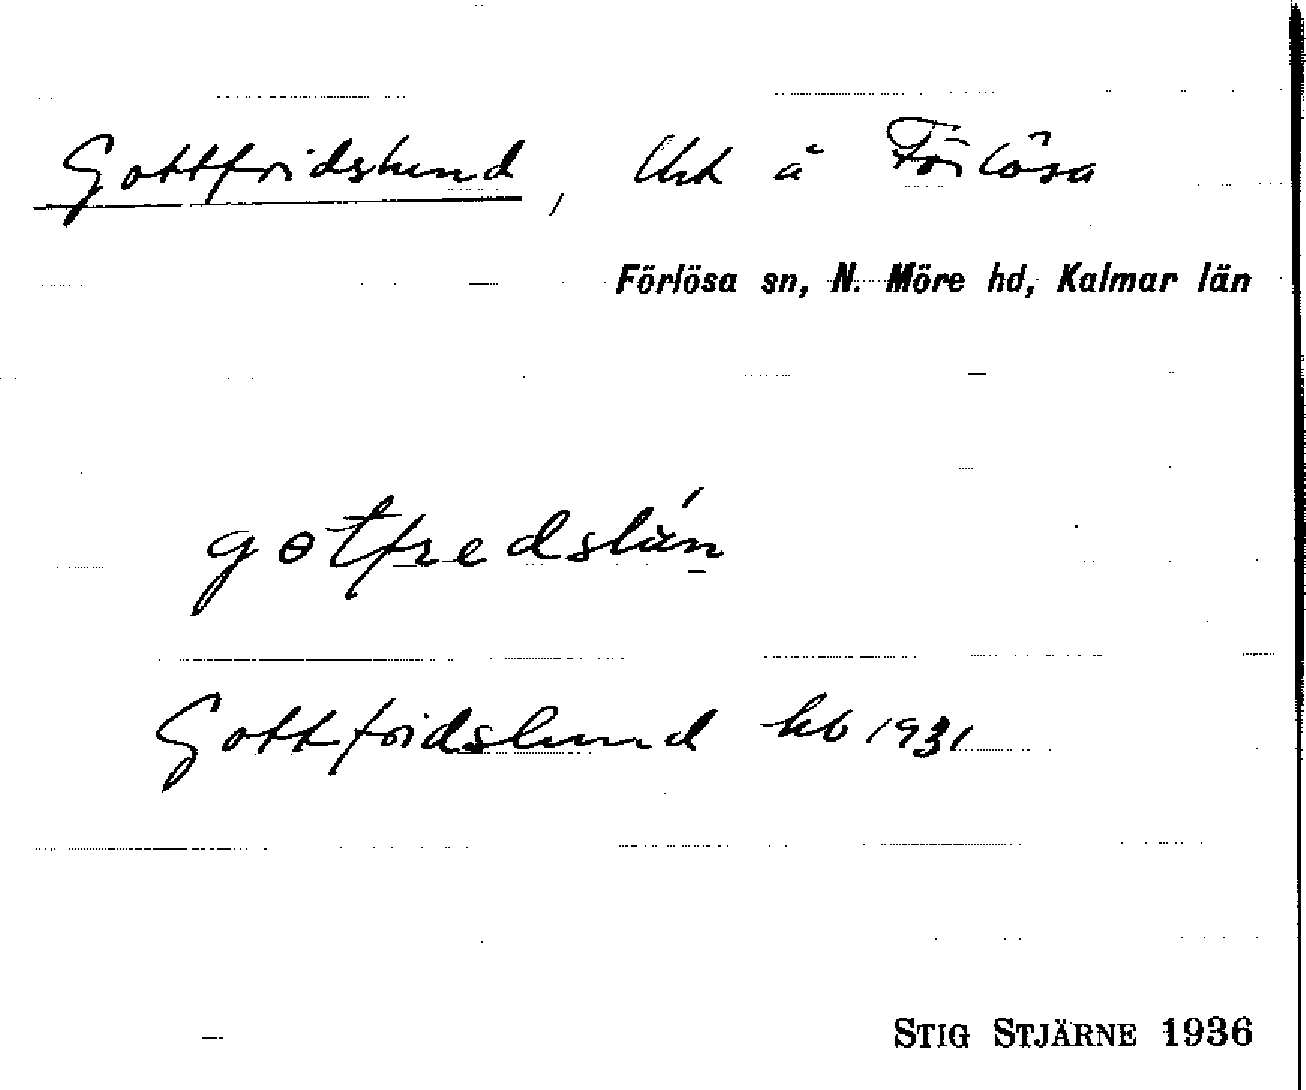 Gottfridslund, Uht å Förlösa
Förlösa sn, N. Möre hd, Kalmar län
gɵtfredslún
Gottfridslund kb 1931
STIG STJÄRNE 1936